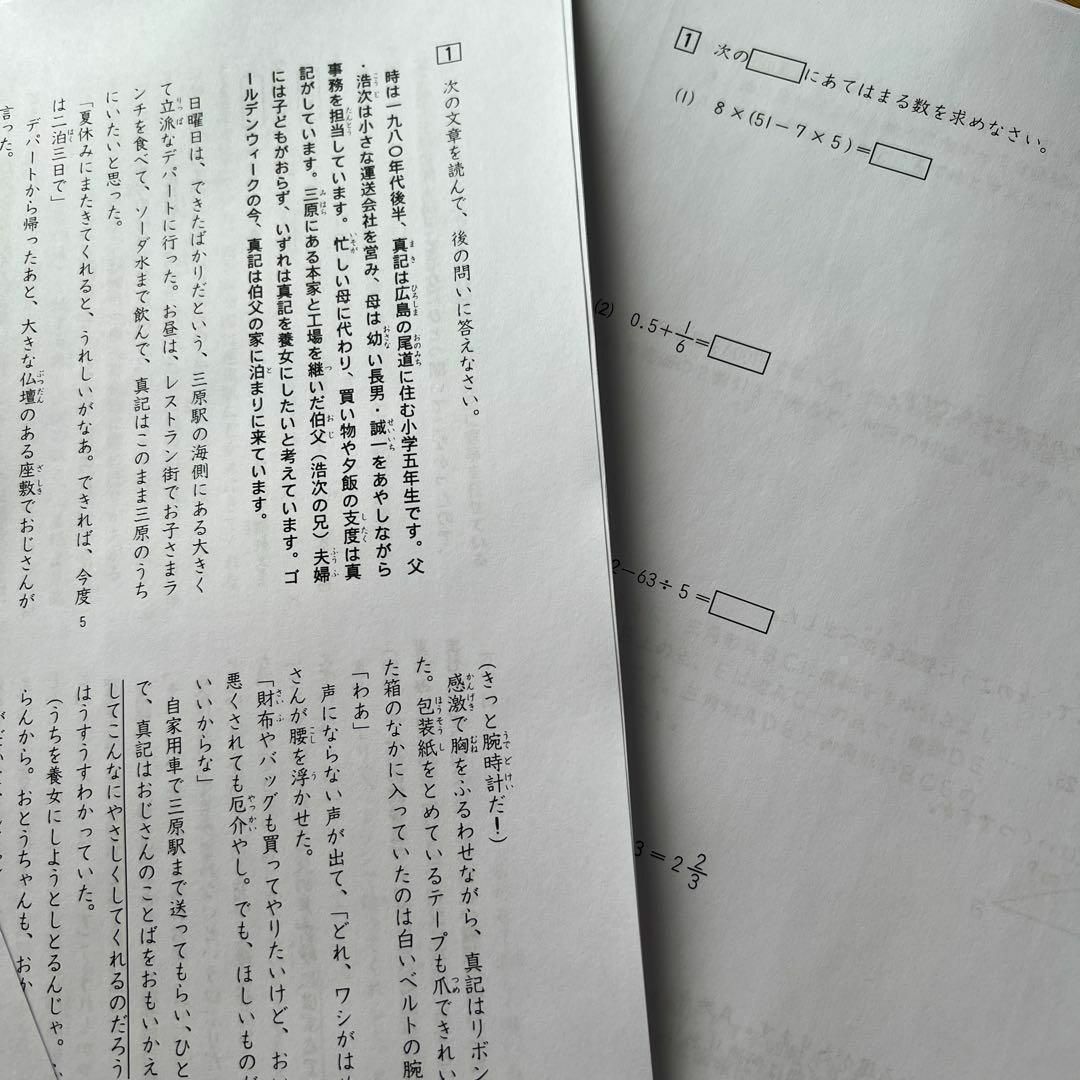 1
次の文章を読んで、後の問いに答えなさい。
時は一九八〇年代後半、真記は広島の尾道に住む小学五年生です。父
・浩次は小さな運送会社を営み、母は幼い長男・誠一をあやしながら
事務を担当しています。忙しい母に代わり、買い物や夕飯の支度は真
記がしています。三原にある本家と工場を継いだ伯父（浩次の兄）夫婦
には子どもがおらず、いずれは真記を養女にしたいと考えています。ゴ
ールデンウィークの今、真記は伯父の家に泊まりに来ています。
日曜日は、できたばかりだという、三原駅の海側にある大きく
て立派なデパートに行った。お昼は、レストラン街でお子さまラ
ンチを食べて、ソーダ水まで飲んで、真記はこのまま三原のうち
にいたいと思った。
「夏休みにまたきてくれると、うれしいがなあ。できれば、今度
は二泊三日で」
5
デパートから帰ったあと、大きな仏壇のある座敷でおじさんが
言った。
（きっと腕時計だ！）
感激で胸をふるわせながら、真記はリボン
た。包装紙をとめているテープも爪できれい
た箱のなかに入っていたのは白いベルトの腕
「わあ」
声にならない声が出て、「どれ、ワシがは
さんが腰を浮かせた。
「財布やバッグも買ってやりたいけど、お
悪くされても厄介やし。でも、ほしいものが
いいからな」
自家用車で三原駅まで送ってもらい、ひと
で、真記はおじさんのことばをおもいかえ
してこんなにやさしくしてくれるのだろう
はうすうすわかっていた。
（うちを養女にしようとしとるんじゃ。
らんから。おとうちゃんも、おか
1
次の
にあてはまる数を求めなさい。
(1) 8×(51−7×5)=
(2) 0.5+1/6=
−63÷5=
3=2 2/3